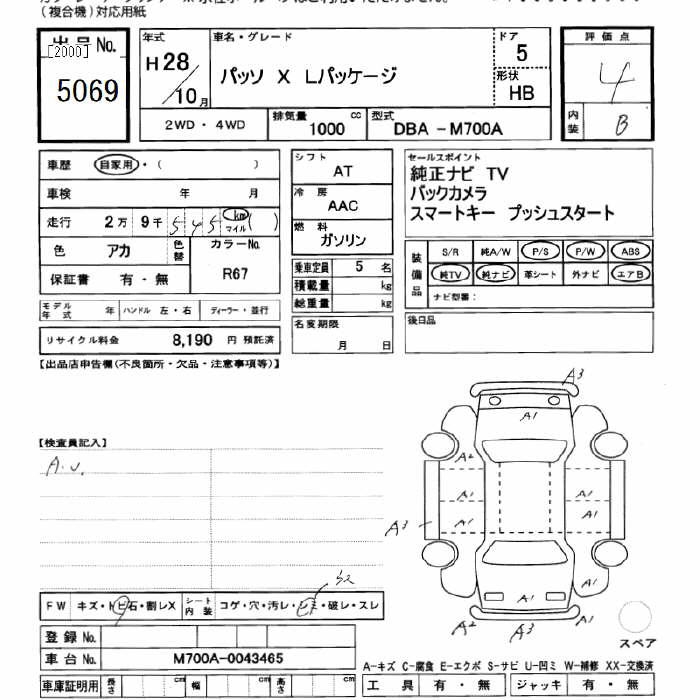 (複合機)対応用紙
出品No.
[2000]
5069
年式
H28/10月
車名・グレード
パッソ X Lパッケージ
ドア
5
形状
HB
評価点
4
内装
B
2WD・4WD
排気量
1000 cc
型式
DBA-M700A
車歴 自家用・( )
車検 年 月
走行 2万9千545 km マイル ( )
色 アカ 色替 カラーNo. R67
保証書 有・無
シフト
AT
冷房
AAC
燃料
ガソリン
乗車定員 5 名
積載量 kg
総重量 kg
セールスポイント
純正ナビ TV
バックカメラ
スマートキー プッシュスタート
装備品
S/R 純A/W P/S P/W ABS
純TV 純ナビ 革シート 外ナビ エアB
ナビ型番:
モデル年式 年 ハンドル 左・右 ディーラー・並行
リサイクル料金 8,190 円 預託済
名変期限
月 日
後日品
【出品店申告欄(不良箇所・欠品・注意事項等)】
【検査員記入】
A.U.
A3
A1
A1 A1
A2 A1
A1 A1
A1 A1
A3
A1 A1
A2 A3 A2
スペア
FW キズ・トビ石・割レX シート内装 コゲ・穴・汚レ・シミ・破レ・スレ
登録No.
車台No. M700A-0043465
車庫証明用 長さ cm 幅 cm 高さ cm
A-キズ C-腐食 E-エクボ S-サビ U-凹ミ W-補修 XX-交換済
工具 有・無 ジャッキ 有・無